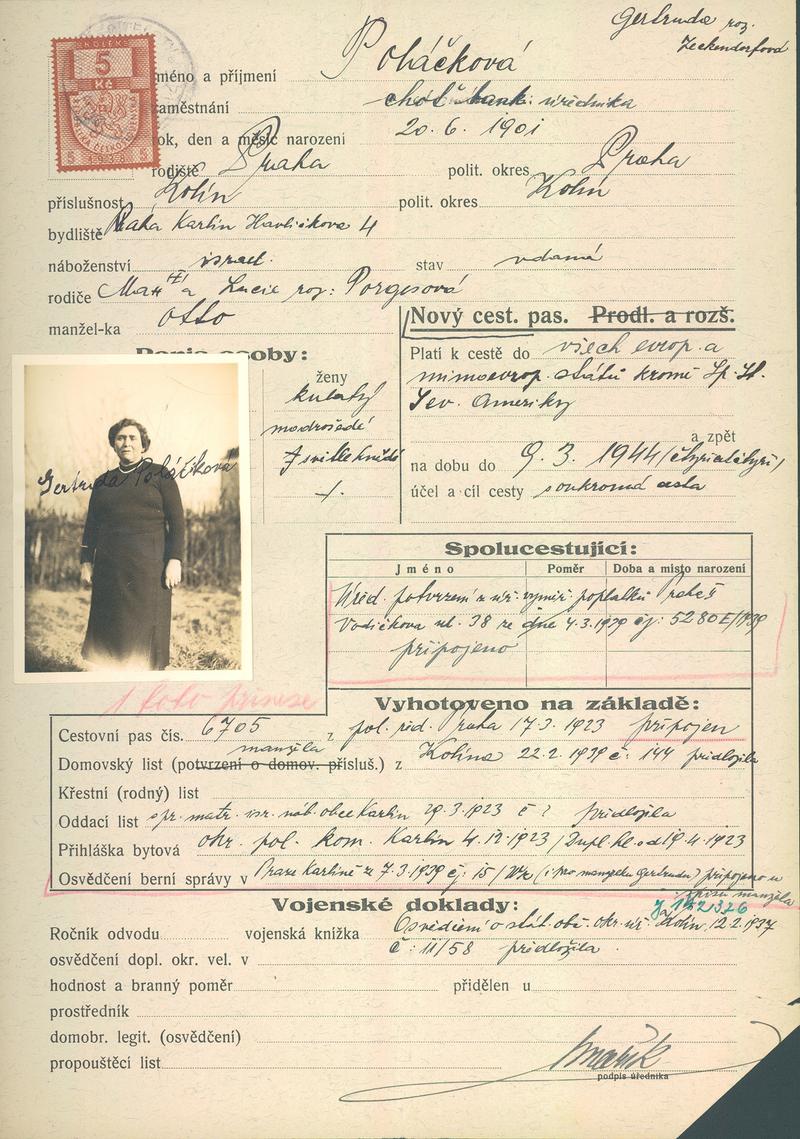 Gertruda roz.
Zeckendorfová
KOLEK
5
Kč
5 1938 5
méno a příjmení Poláčková
aměstnání choť bank. úředníka
ok, den a měsíc narození 20. 6. 1901
rodiště Praha polit. okres Praha
příslušnost Kolín polit. okres Kolín
bydliště Praha Karlín Havlíčkova 4
náboženství israel. stav vdaná
rodiče Max a Lucie roz: Porgesová
manžel-ka Otto
Nový cest. pas. Prodl. a rozš.
Popis osoby:
Platí k cestě do všech evrop. a
mimoevrop. států kromě Sp. St.
Sev. Ameriky
ženy
kulatý
modrošedé
světle hnědé
a zpět
na dobu do 9. 3. 1944 (čtyřicetčtyři)
účel a cíl cesty soukromá cesta
Gertruda Poláčková
Spolucestující:
Jméno Poměr Doba a místo narození
Úřed. potvrzení z úř. vyměř. poplatků Praha
Vodičkova ul. 38 ze dne 4.3.1939 čj: 5280E/1939
připojeno
1 foto přinese
Vyhotoveno na základě:
Cestovní pas čís. 6705 z pol. řed. Praha 17.3.1923 připojen
manžela
Domovský list (potvrzení o domov. přísluš.) z Kolína 22.2.1939 č. 144 předložila
Křestní (rodný) list
Oddací list spr. matr. isr. náb. obce Karlín 29.3.1923 č ? předložila
Přihláška bytová okr. pol. kom. Karlín 4.12.1923 / Dupl. 19.4.1923
Osvědčení berní správy v Praze Karlíně z 7.3.1939 čj: 15/ (i pro manželku Gertrudu) připojeno u
spisu manžela
Vojenské doklady:
Ročník odvodu vojenská knížka Osvědčení o stát. obč. okr. úř. Kolín, 12.2.1937
osvědčení dopl. okr. vel. v č: 11/58 předložila.
hodnost a branný poměr přidělen u
prostředník
domobr. legit. (osvědčení)
propouštěcí list
podpis úředníka